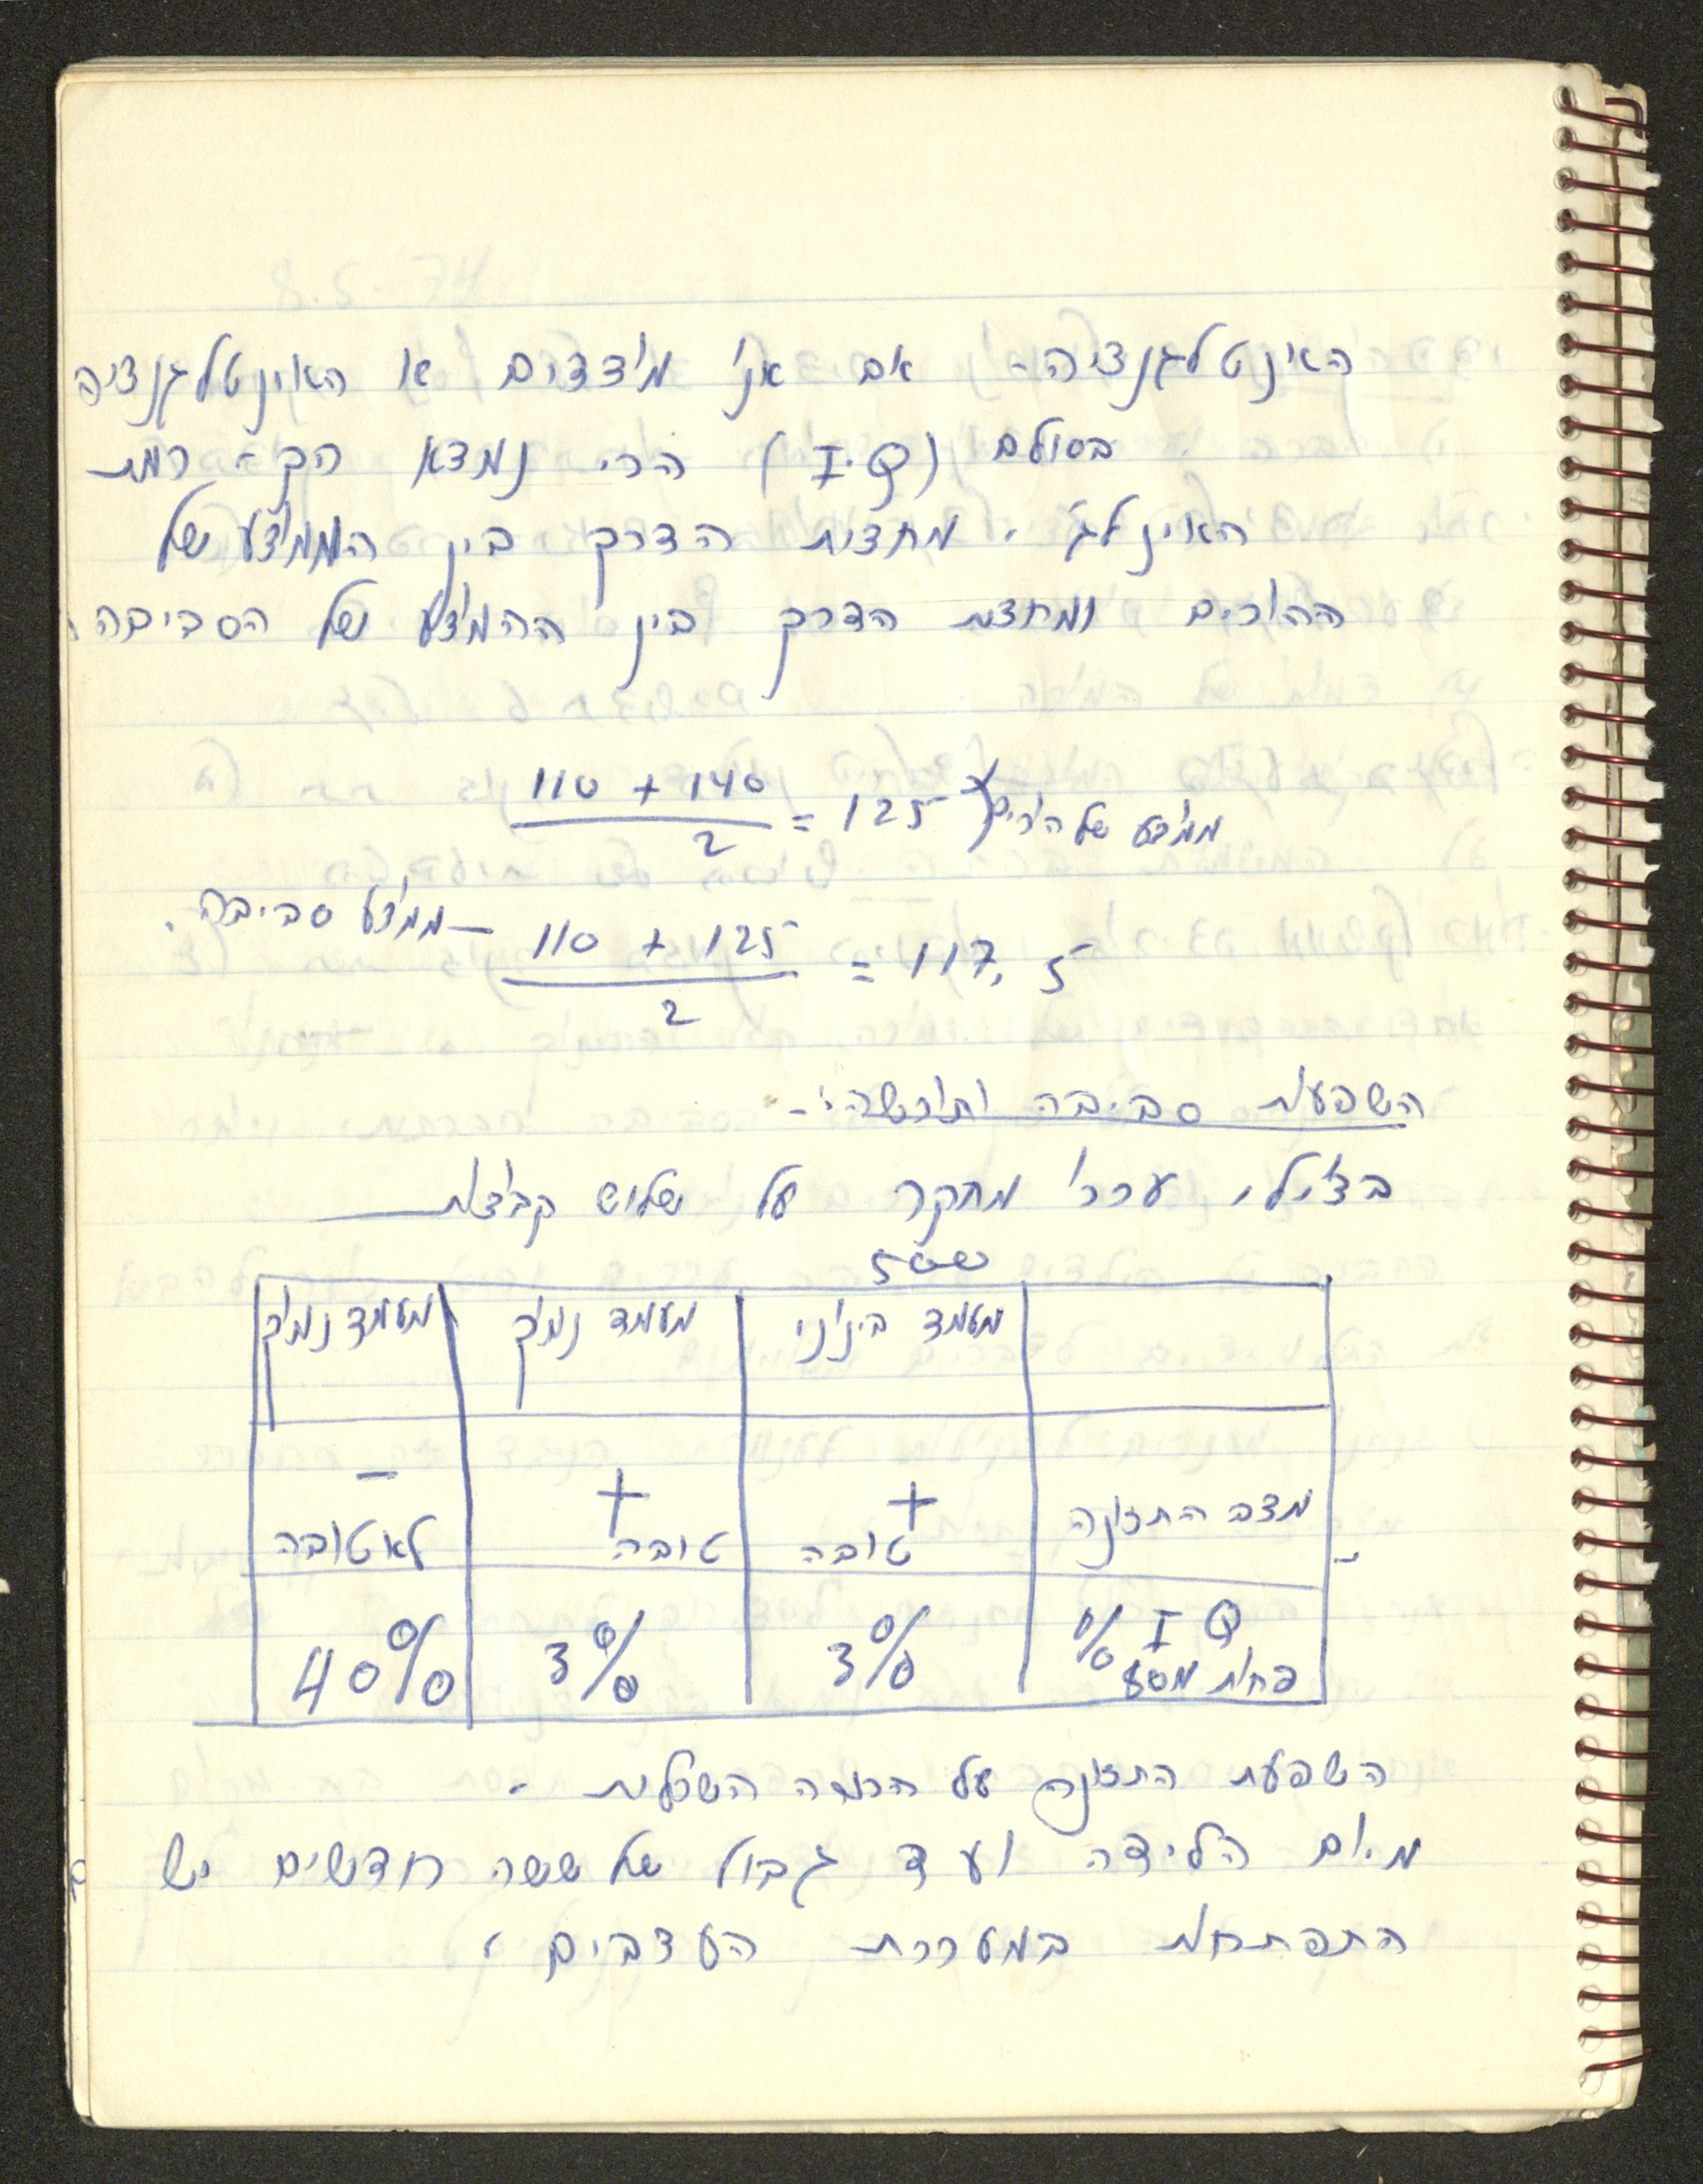 האינטלגנציה- אם אנו מודדים או האוינטלגנציה
בסולם (I.Q) הרי נמצא הק- רמת
האוינלג' . מחצית הדרך בין הממוצע של
ההורים ומחצית הדרך בין ההמוצע של הסביבה
110 + 140 / 2 = 125 ממוצע של הורים
110 + 125 / 2 = 117,5 – ממוצע סביבה.
השפעת סביבה ותורשה:-
בצ'ילי ערכו מחקר על שלוש קבוצות
מעמד בינוני מעמד נמוך מעמד נמוך
מצב התזונה + טובה + טובה - לא טובה
% I Q פחות 3% 3% 40%
השפעת התזונה על הרמה השכלית -
מיום הלידה ועד גבול של ששה חודשים יש
התפתחות במערכת העצבים.